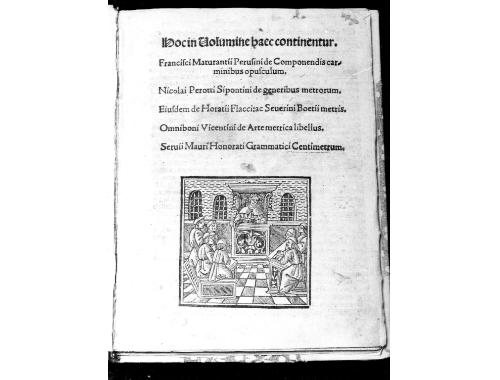 Hoc in Uolumine haec continentur.
Francisci Maturantii Perusini de Componendis car-
minibus opusculum.
Nicolai Perotti Sipontini de generibus metrorum.
Eiusdem de Horatii Flacci ac Seuerini Boetii metris.
Omniboni Vicentini de Arte metrica libellus.
Seruii Mauri Honorati Grammatici Centimetrum.